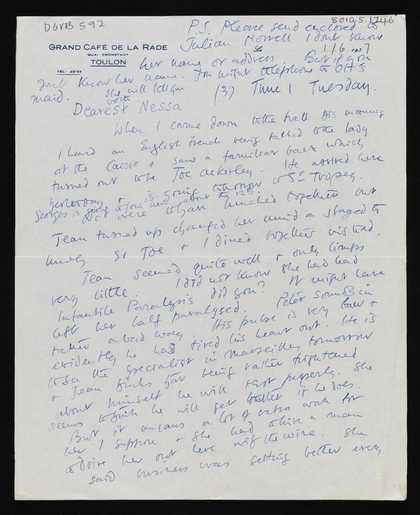 DGVB 592
8010.5.1746
P.S. Please send enclosed to
GRAND CAFÉ DE LA RADE
Julian Morrell I dont know
QUAI CRONSTADT
her name or address. But if you
TOULON
dont know her name. You might telephone to O.H.S
TÉL.
maid. She will tell you
(3) June 1 Tuesday.
Dearest Nessa
When I came down to the hall this morning
I heard an English French being talked to the lady
at the Caisse & saw a familiar back which
turned out to be Joe Ackerley. He arrived here
yesterday & is going tomorrow to St Tropez.
We were to have lunched together but
Jean turned up changed her mind & stayed to
lunch so Joe & I dined together instead.
Jean seemed quite well & only limps
very little. I did not know she had had
Infantile Paralysis did you? It might have
left her half paralysed. Peter sounds in
rather a bad way. His pulse is very low &
evidently he has tired his heart out. He is
to see the specialist in Marseilles tomorrow
& Jean thinks that being rather frightened
about himself he will rest properly. She
seems to think he will get better if he does.
But it means a lot of extra work for
her I suppose & she had to hire a man
to drive her out here with the wine. She
said business was getting better every